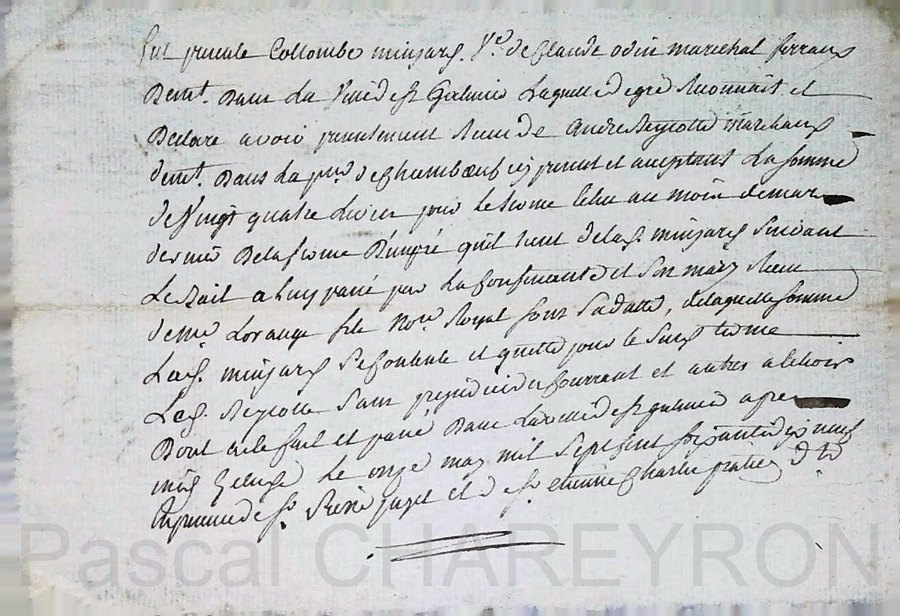 fut presente Collombe minjard V.e de Claude odin marechal ferrand
Demt. Dans La Ville de st Galmier Laquelle de gré Reconnait et
Declare avoir presentement Receu de André Reynotte Marchand
demt. Dans La p.sse de Chambœuf icy present et acceptant La somme
de Vingt quatre Livres pour le terme Echu au mois de mars
dernier De la ferme Du pré qu'il tient de lad. minjard Suivant
Le Bail a Luy passé par La Confessante et Son mary Receu
de me Lorange fils Nore. Royal Sous Sa datte, de laquelle Somme
Lad. minjard Se Contente et quitte pour le Susd. terme
Led. Reynotte Sans prejudice du Courrant et autres a Echoir
Dont acte fait et passé Dans La Ville de st galmier apres
midy Le onze may mil Sept Cent soixante dix neuf
En presence de Sr. Pierre juget et de Sr. etienne Charles praticiens dud.
Pascal CHAREYRON